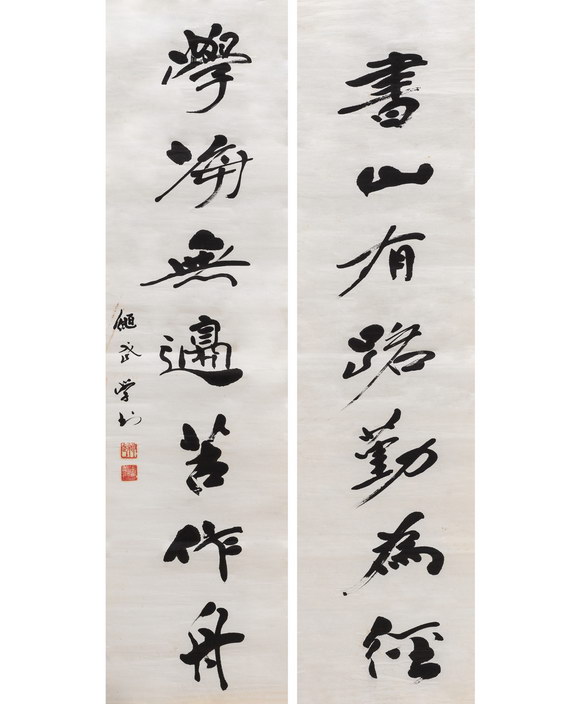 書山有路勤為徑
學海無邊苦作舟
武学书